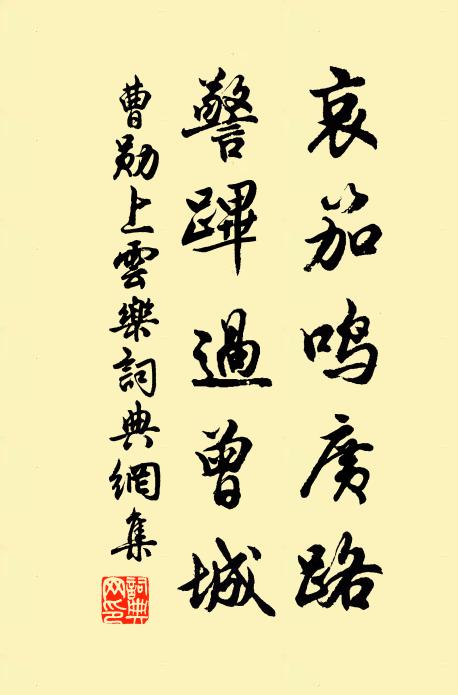 哀笳鳴廣路
警蹕過曾城
曹勛上雲樂詞典網集
詞典网印